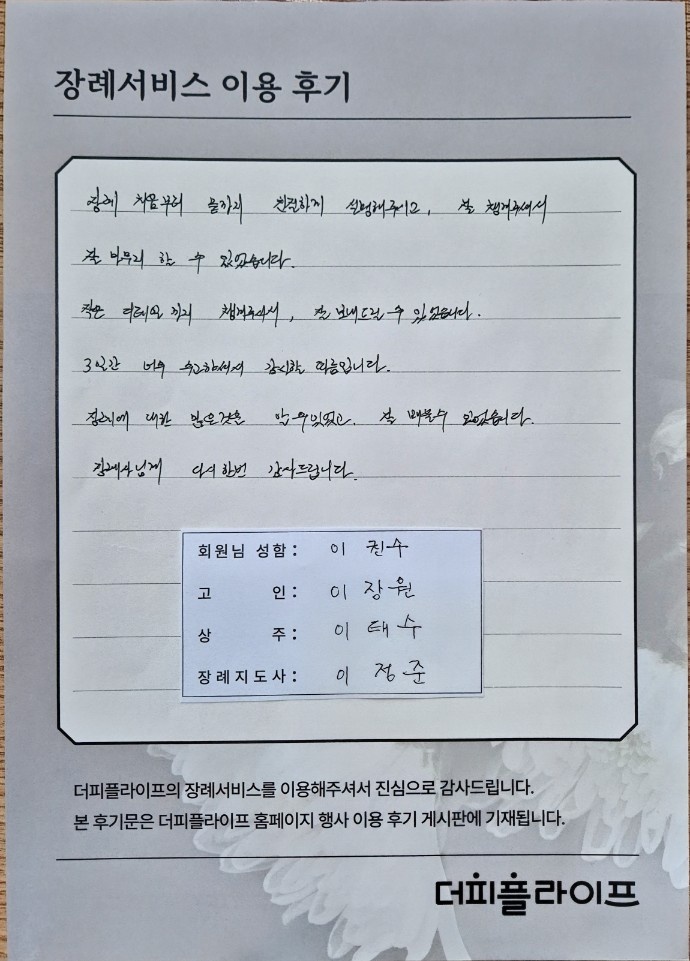 장례서비스 이용 후기
장례 처음부터 끝까지 친절하게 설명해주시고, 잘 챙겨주셔서
잘 마무리 할 수 있었습니다.
작은 디테일 까지 챙겨주셔서, 잘 보내드릴 수 있었습니다.
3일간 너무 수고하셔서 감사할 따름입니다.
장례에 대한 많은것을 알 수 있었고. 잘
장례사님께 다시한번 감사드립니다.
회원님 성함: 이 권수
고 인: 이 장원
상 주: 이 태수
장례지도사: 이 정준
더피플라이프의 장례서비스를 이용해주셔서 진심으로 감사드립니다.
본 후기문은 더피플라이프 홈페이지 행사 이용 후기 게시판에 기재됩니다.
더피플라이프